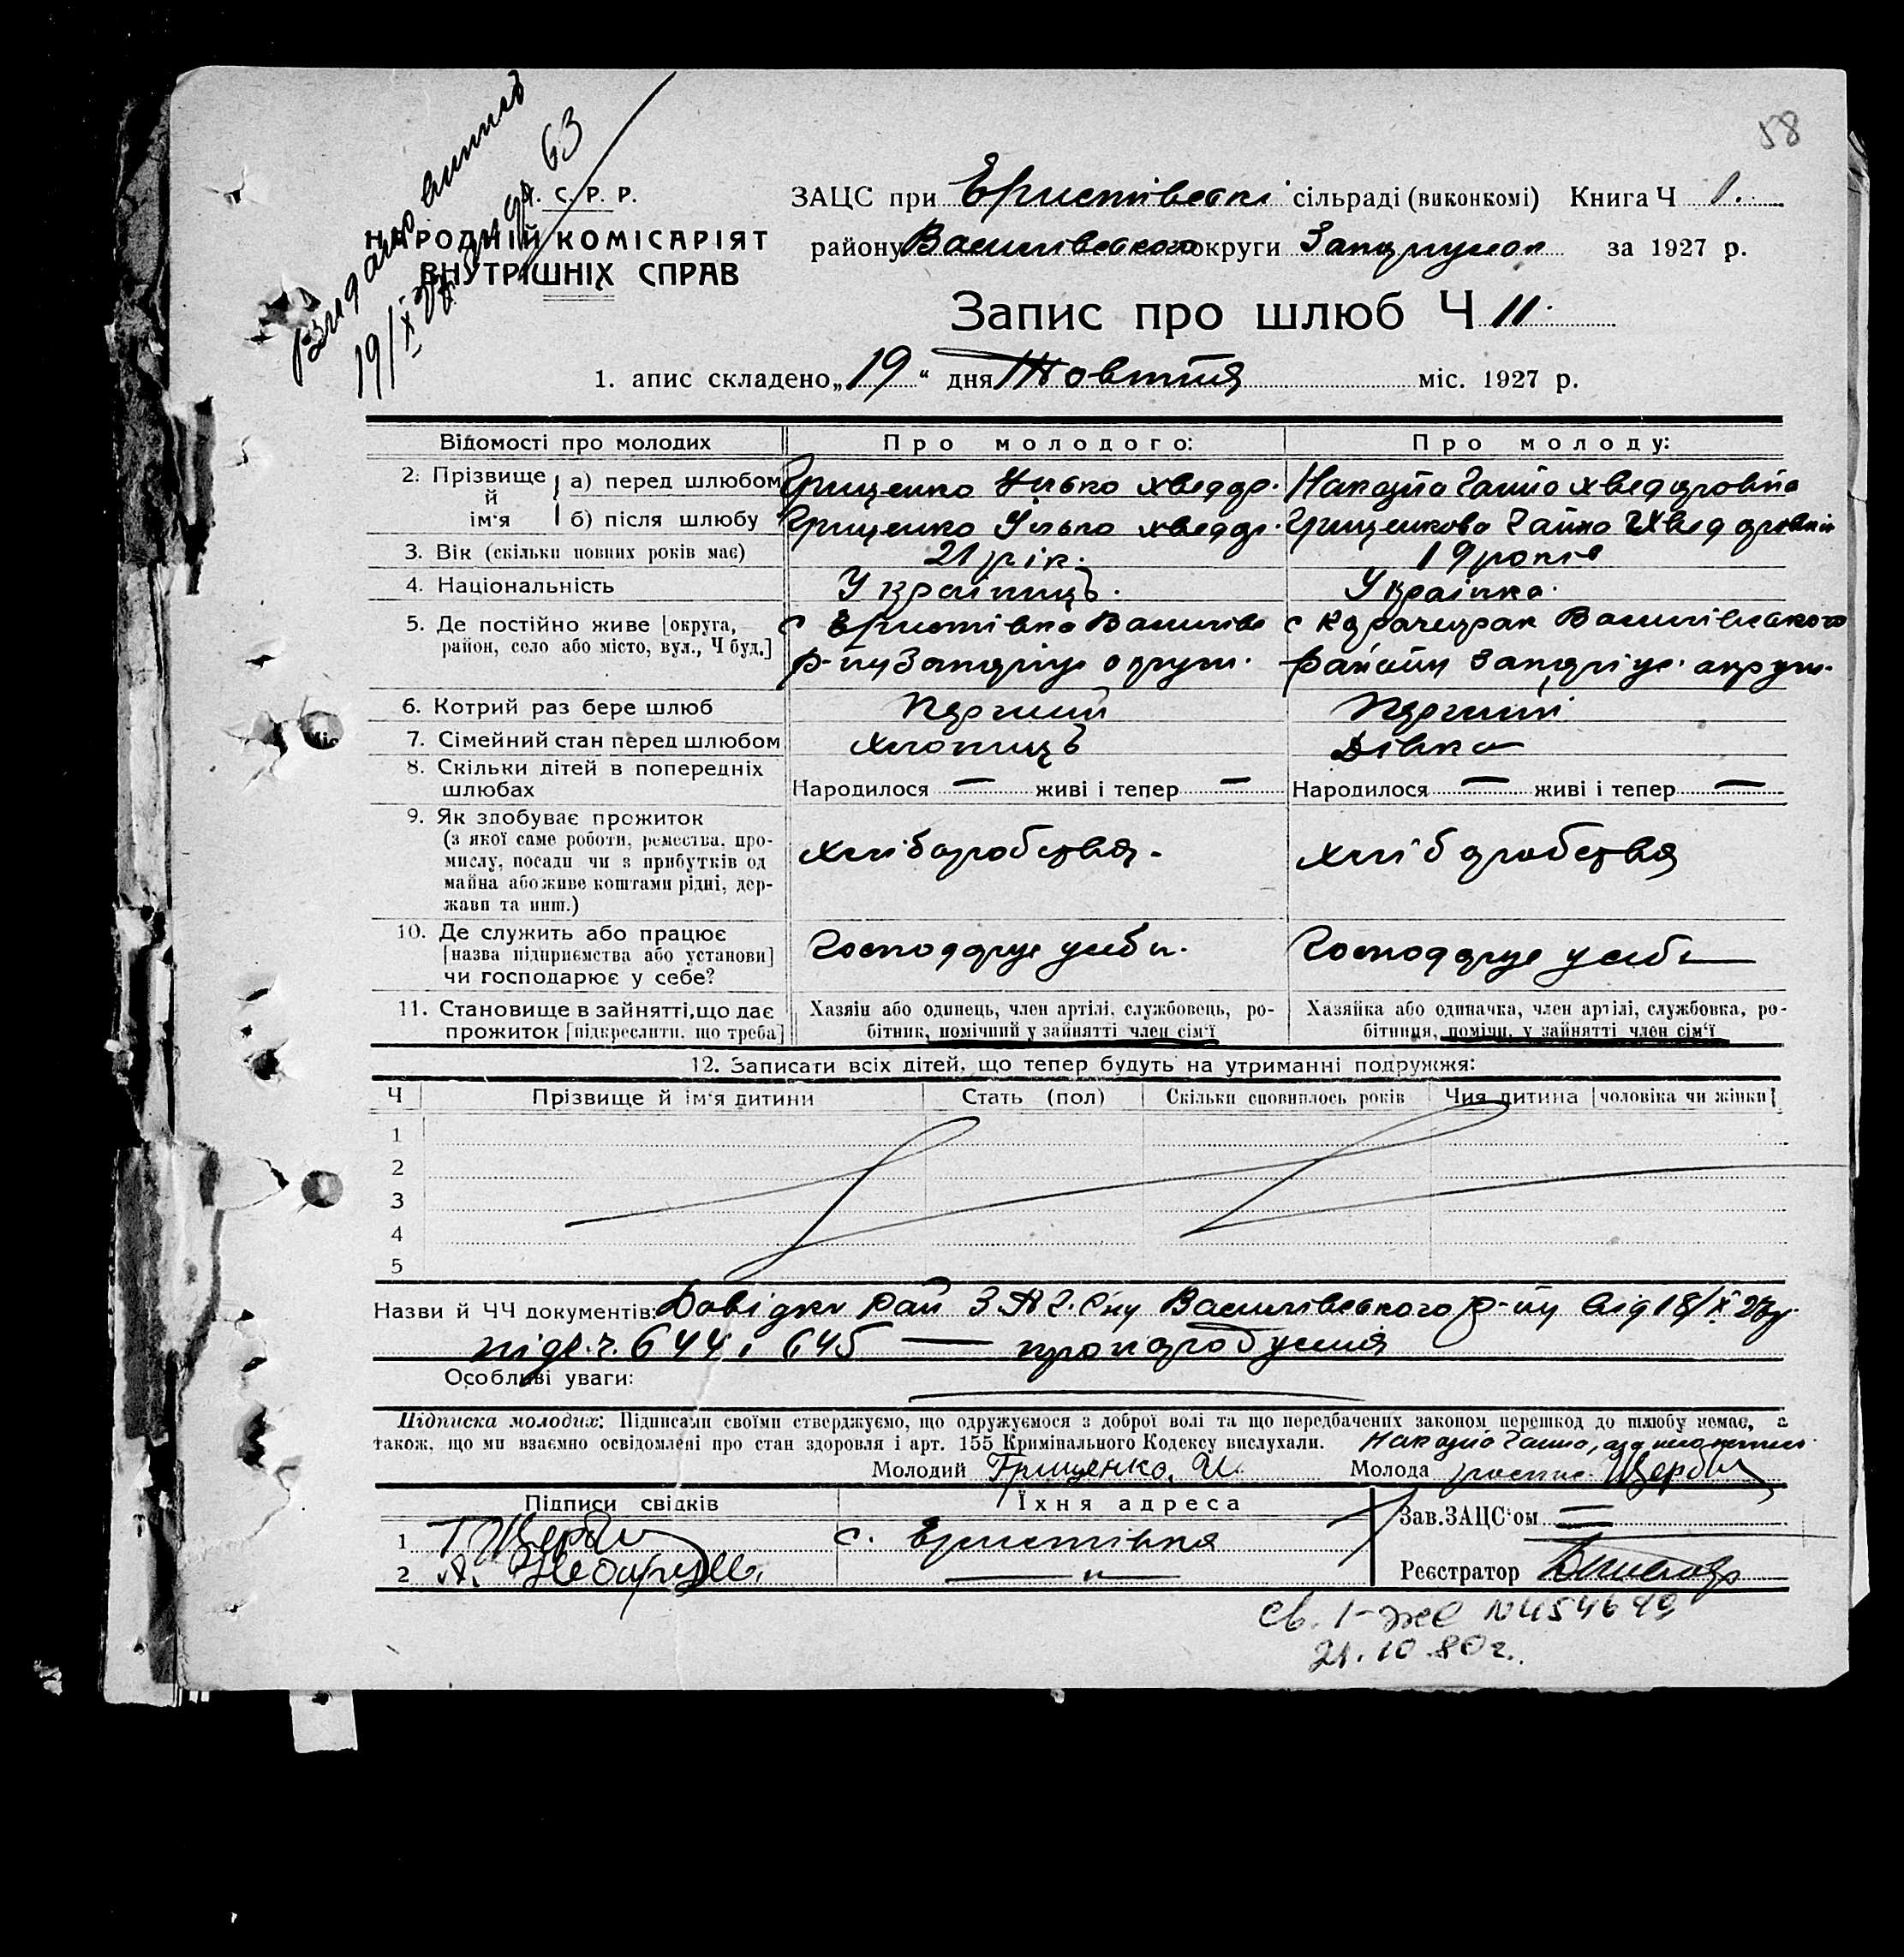 58
Видано випись
19/X 27 р. за № 63
У. С. Р. Р.
НАРОДНІЙ КОМІСАРІЯТ
ВНУТРІШНІХ СПРАВ
ЗАЦС при Еристівські сільраді (виконкомі) Книга Ч 1.
району Василівського округи Запоріжск за 1927 р.
Запис про шлюб Ч 11.
1. апис складено „19“ дня Жовтня міс. 1927 р.
Відомості про молодих Про молодого: Про молоду:
2. Прізвище й ім'я а) перед шлюбом Грищенко Илько Хведор. Ганна Хведоровна
б) після шлюбу Грищенко Илько Хведор. Грищенкова Ганна Хведоровна
3. Вік (скільки повних років має) 21 рік. 19 років
4. Національність Україниць. Українка.
5. Де постійно живе [округа, с Еристівка Василівс с Карачекрак Василівського
район, село або місто, вул., Ч буд.] р-ну Запоріж округи. Району Запоріж. округи.
6. Котрий раз бере шлюб Перший Перший
7. Сімейний стан перед шлюбом Хлопиць Дівка
8. Скільки дітей в попередніх
шлюбах Народилося — живі і тепер — Народилося — живі і тепер —
9. Як здобуває прожиток
(з якої саме роботи, ремества, про-
мислу, посади чи з прибутків од
майна або живе коштами рідні, дер-
жави та инш.)
Хліборобства. Хліборобства
10. Де служить або працює
[назва підприємства або установи]
чи господарює у себе?
Господарує у себи. Господарує у себи
11. Становище в зайнятті, що дає Хазяїн або одинець, член артілі, службовець, ро- Хазяйка або одиначка, член артілі, службовка, ро-
прожиток [підкреслити, що треба] бітник, помічний у зайнятті член сім'ї бітниця, помічн. у зайнятті член сім'ї
12. Записати всіх дітей, що тепер будуть на утриманні подружжя:
Ч Прізвище й ім'я дитини Стать (пол) Скільки сповнилось років Чия дитина [чоловіка чи жінки]
1
2
3
4
5
Назви й ЧЧ документів: Довідки Рай З.А.Г.С'ну Василівського р-ну від 18/X 27р.
під ч. 644 і 645 —
Особливі уваги:
Підписка молодих: Підписами своїми стверджуємо, що одружуємося з доброї волі та що передбачених законом перешкод до шлюбу немає, а
також, що ми взаємно освідомлені про стан здоровля і арт. 155 Кримінального Кодексу вислухали. Ганна,
Молодий Грищенко. И. Молода Щерби
Підписи свідків Їхня адреса Зав. ЗАЦС'ом =
1 Т Щерби с. Еристівка
2 — " — Реєстратор
Св. I-же N 454649
21.10.80 г.